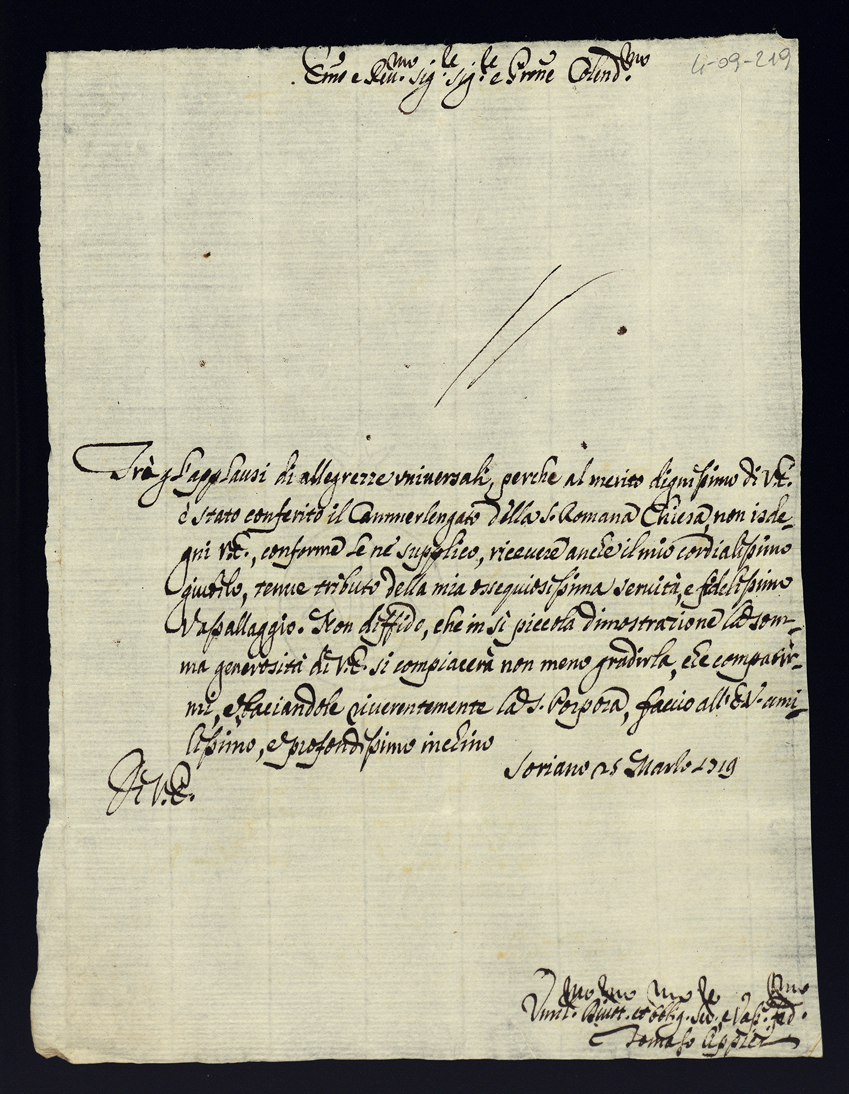 Em̃o e Reu.mo Sig.re Sig.re e P̃rone Colend.mo
4-09-219
Trà gl'applausi di allegrezze vniuersali, perche al merito dignissimo di V.E.
è stato conferito il Cammerlengato della S. Romana Chiesa, non isde-
gni V.E., conforme Le ne supplico, riceuere anche il mio cordialissimo
giubilo, tenue tributo della mia ossequiosissima seruitù, e fedelissimo
Vassallaggio. Non diffido, che in sì piccola dimostrazione la som-
ma generosità di V.E. si compiacerà non meno gradirla, che compatir-
mi, e baciandole riuerentemente la S. Porpora, faccio all'E.V. umi-
lissimo, e profondissimo inchino
Soriano 25 Marzo 1719
Di V.E.
Vmil.mo Diuot.mo et obblig.mo Se.re, e Vass. fed.mo
Tomaso